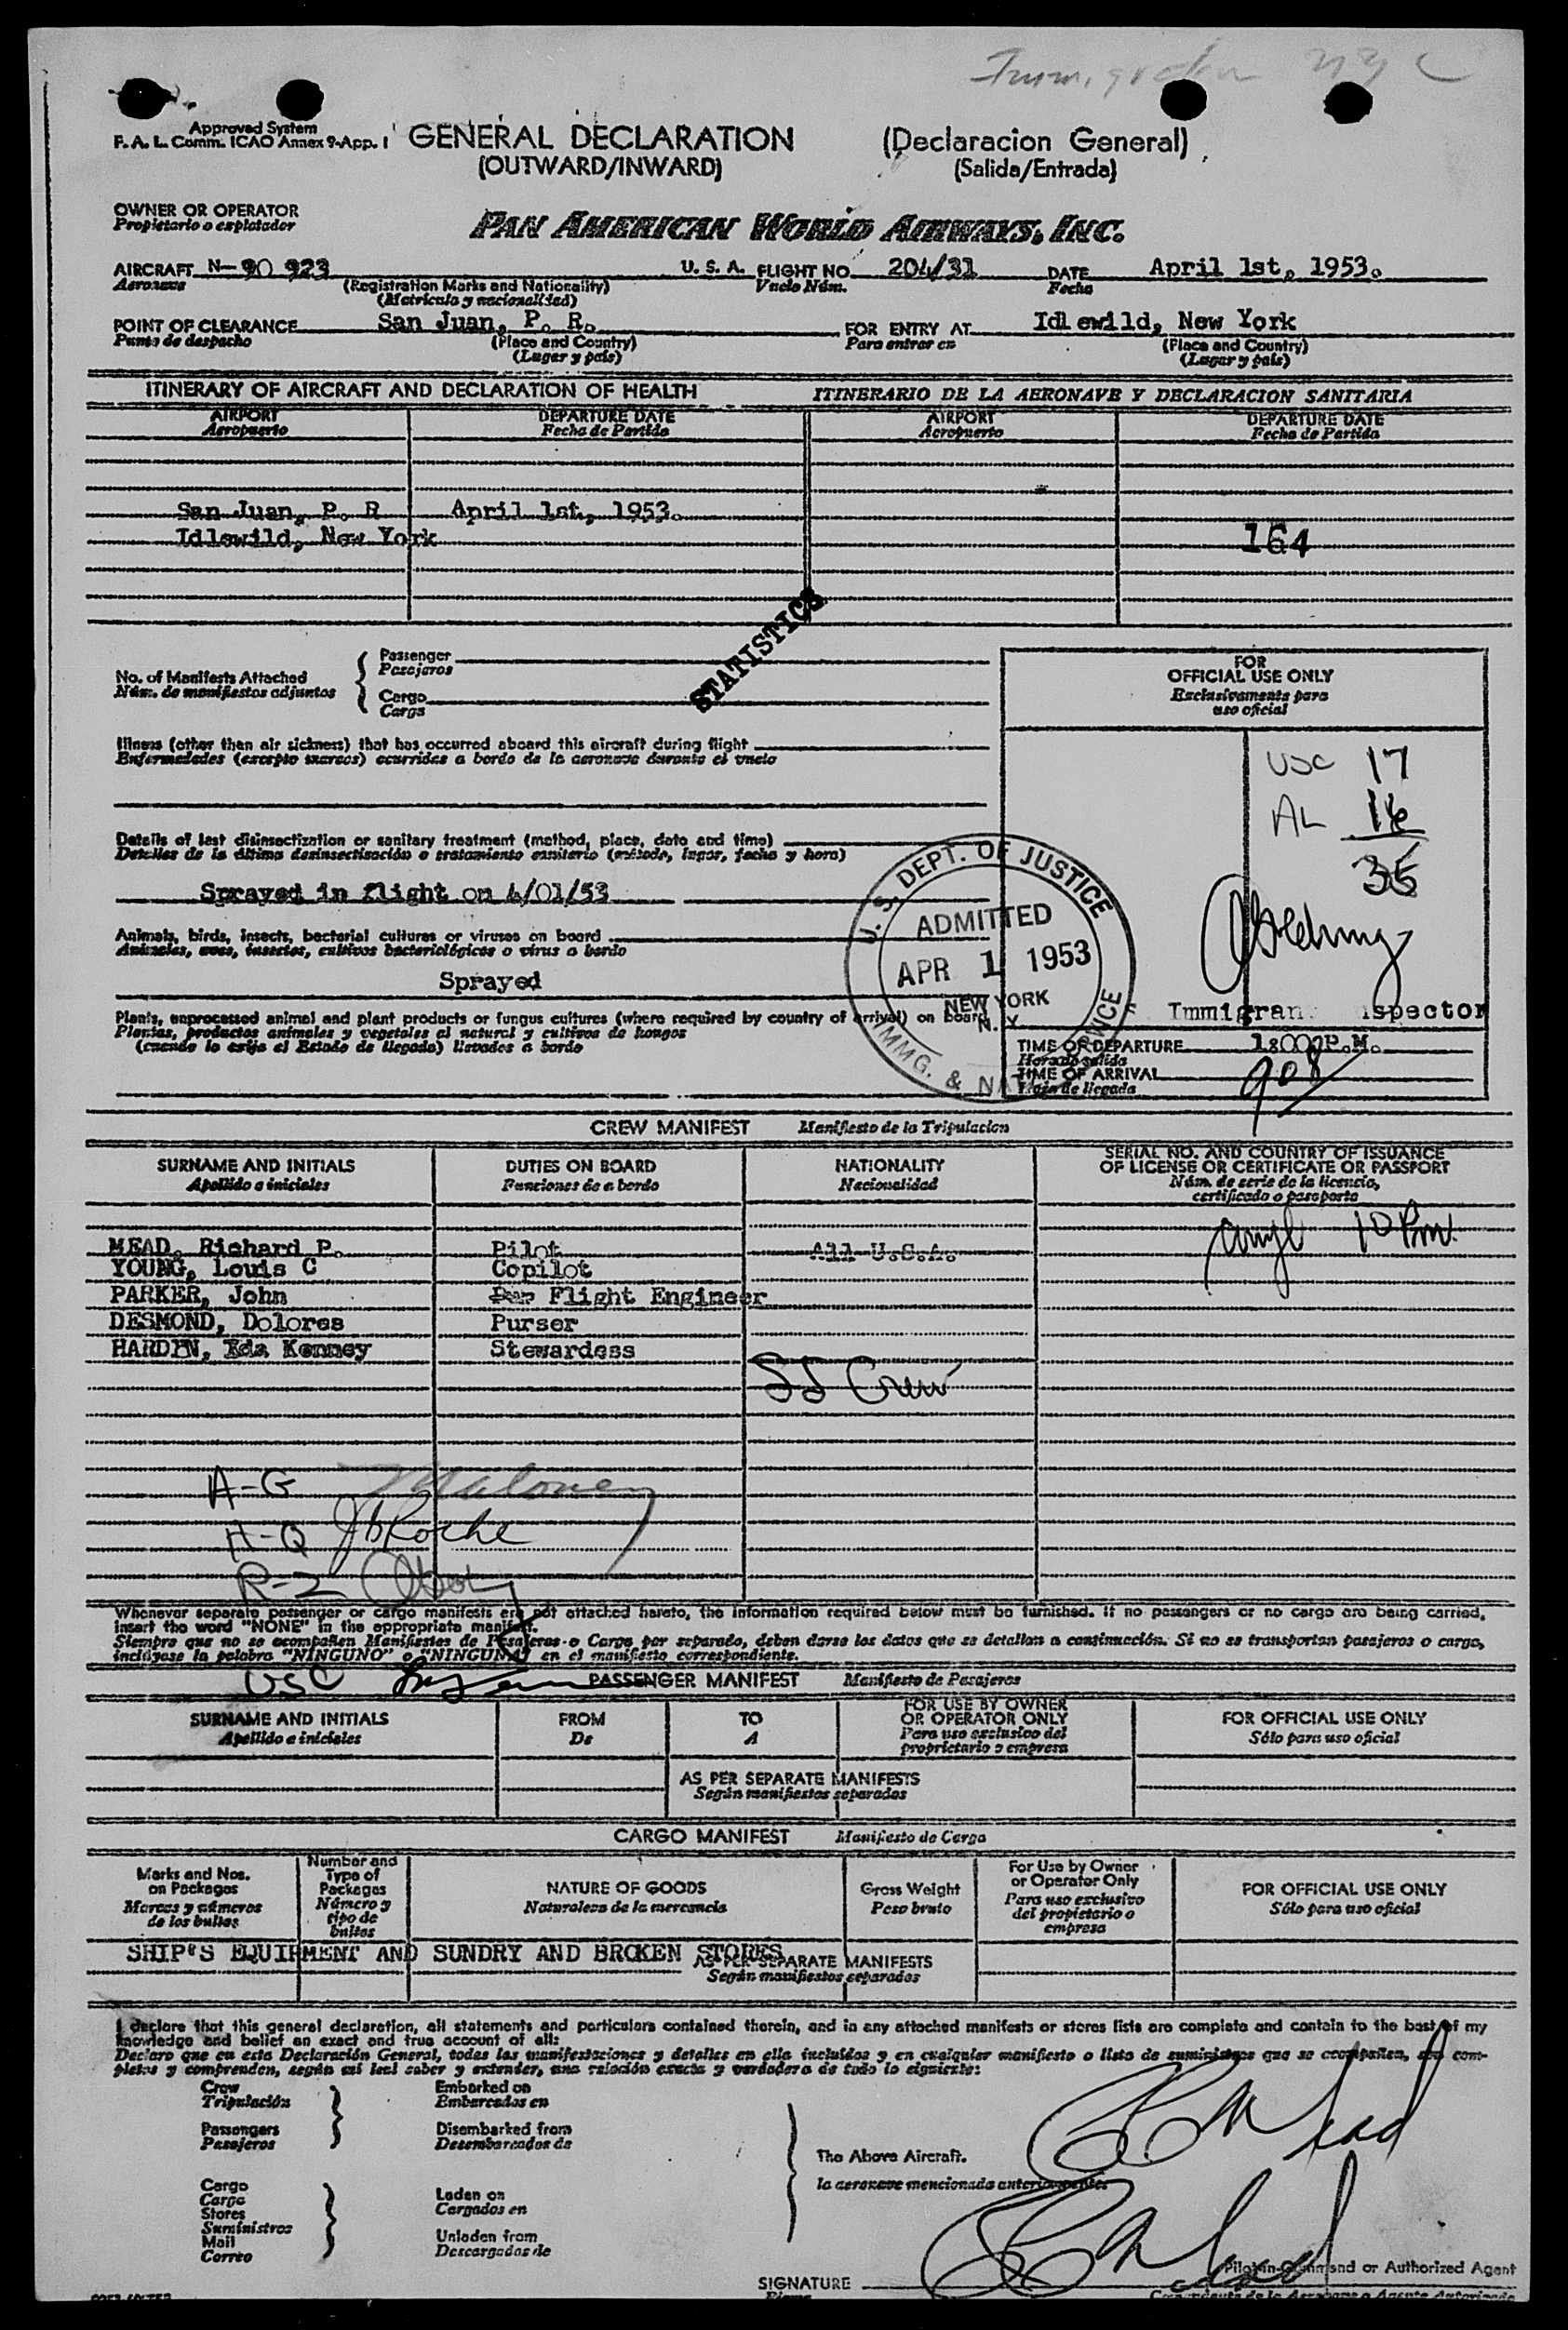 Approved System
F. A. L. Comm. ICAO Annex 9-App. 1
GENERAL DECLARATION
(OUTWARD/INWARD)
(Declaracion General)
(Salida/Entrada)
OWNER OR OPERATOR
Propietario o explotador
PAN AMERICAN WORLD AIRWAYS, INC.
AIRCRAFT N-90 923 U. S. A. FLIGHT NO. 204/31 DATE April 1st, 1953.
Aeronave (Registration Marks and Nationality) Vuelo Núm. Fecha
(Matricula y nacionalidad)
POINT OF CLEARANCE San Juan, P. R. FOR ENTRY AT Idlewild, New York
Punto de despacho (Place and Country) Para entrar en (Place and Country)
(Lugar y país) (Lugar y país)
ITINERARY OF AIRCRAFT AND DECLARATION OF HEALTH ITINERARIO DE LA AERONAVE Y DECLARACION SANITARIA
AIRPORT DEPARTURE DATE AIRPORT DEPARTURE DATE
Aeropuerto Fecha de Partida Aeropuerto Fecha de Partida
San Juan, P. R April 1st, 1953.
Idlewild, New York
164
STATISTICS
No. of Manifests Attached
Núm. de manifiestos adjuntos
Passenger
Pasajeros
Cargo
Carga
FOR
OFFICIAL USE ONLY
Exclusivamente para
uso oficial
USC 17
AL
35
Illness (other than air sickness) that has occurred aboard this aircraft during flight
Enfermedades (excepto mareos) ocurridas a bordo de la aeronave durante el vuelo
Details of last disinsectization or sanitary treatment (method, place, date and time)
Detalles de la última desinsectización o tratamiento sanitario (método, lugar, fecha y hora)
Sprayed in flight on 4/01/53
Animals, birds, insects, bacterial cultures or viruses on board
Animales, aves, insectos, cultivos bacteriológicos o virus a bordo
Sprayed
Plants, unprocessed animal and plant products or fungus cultures (where required by country of arrival) on board
Plantas, productos animales y vegetales al natural y cultivos de hongos
(cuando lo exija el Estado de llegada) llevados a bordo
U. S. DEPT. OF JUSTICE
ADMITTED
APR 1 1953
NEW YORK
N. Y.
IMMG. & NAT.
TIME OF DEPARTURE 1:00 P.M.
Hora de salida
TIME OF ARRIVAL 908
Hora de llegada
CREW MANIFEST Manifiesto de la Tripulacion
SURNAME AND INITIALS DUTIES ON BOARD NATIONALITY SERIAL NO. AND COUNTRY OF ISSUANCE
OF LICENSE OR CERTIFICATE OR PASSPORT
Apellido e iniciales Funciones de a bordo Nacionalidad Núm. de serie de la licencia,
certificado o pasaporte
10 Pm.
MEAD, Richard P. Pilot All U.S.A.
YOUNG, Louis C Copilot
PARKER, John Flight Engineer
DESMOND, Dolores Purser
HARDIN, Eda Kenney Stewardess
Crew
A-G Maloney
H-Q Roche
R-Z
Whenever separate passenger or cargo manifests are not attached hereto, the information required below must be furnished. If no passengers or no cargo are being carried,
insert the word "NONE" in the appropriate manifest.
Siempre que no se acompañen Manifiestos de Pasajeros o Carga por separado, deben darse los datos que se detallan a continuación. Si no se transportan pasajeros o carga,
inclúyase la palabra "NINGUNO" o "NINGUNA" en el manifiesto correspondiente.
USC
PASSENGER MANIFEST Manifiesto de Pasajeros
SURNAME AND INITIALS FROM TO FOR USE BY OWNER
OR OPERATOR ONLY FOR OFFICIAL USE ONLY
Apellido e iniciales De A Para uso exclusivo del
proprietario o empresa Sólo para uso oficial
AS PER SEPARATE MANIFESTS
Según manifiestos separados
CARGO MANIFEST Manifiesto de Carga
Marks and Nos.
on Packages
Marcas y números
de los bultos
Number and
Type of
Packages
Número y
tipo de
bultos
NATURE OF GOODS
Naturaleza de la mercancia
Gross Weight
Peso bruto
For Use by Owner
or Operator Only
Para uso exclusivo
del propietario o
empresa
FOR OFFICIAL USE ONLY
Sólo para uso oficial
SHIP'S EQUIPMENT AND SUNDRY AND BROKEN STORES
AS PER SEPARATE MANIFESTS
Según manifiestos separados
I declare that this general declaration, all statements and particulars contained therein, and in any attached manifests or stores lists are complete and contain to the best of my
knowledge and belief an exact and true account of all:
Declaro que en esta Declaración General, todas las manifestaciones y detalles en ella incluídos y en cualquier manifiesto o lista de suministros que se acompañen, son com-
pletos y comprenden, según mi leal saber y entender, una relación exacta y verdadera de todo lo siguiente:
Crew
Tripulación
Passengers
Pasajeros
Embarked on
Embarcados en
Disembarked from
Desembarcados de
Cargo
Carga
Stores
Suministros
Mail
Correo
Laden on
Cargados en
Unladen from
Descargados de
The Above Aircraft.
la aeronave mencionada anteriormente
SIGNATURE
Pilot-in-Command or Authorized Agent